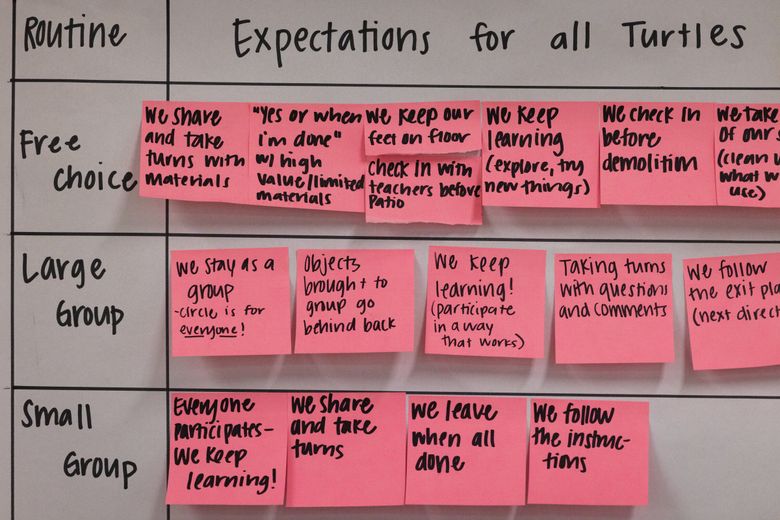 Routine
Expectations for all Turtles
Free
choice
We share
and take
turns with
materials
"Yes or when
i'm done"
w/ high
value/limited
materials
We keep our
feet on floor
check in with
teachers before
Patio
We keep
learning
(explore, try
new things)
We check in
before
demolition
We take
of our
(clean
what w
use)
Large
Group
We stay as a
group
-circle is for
everyone!
Objects
brought to
group go
behind back
We keep
learning!
(participate
in a way
that works)
Taking turns
with questions
and comments
We follow
the exit pla
(next direct
Small
Group
Everyone
participates-
We keep
learning!
We share
and take
turns
We leave
when all
done
We follow
the instruc-
tions